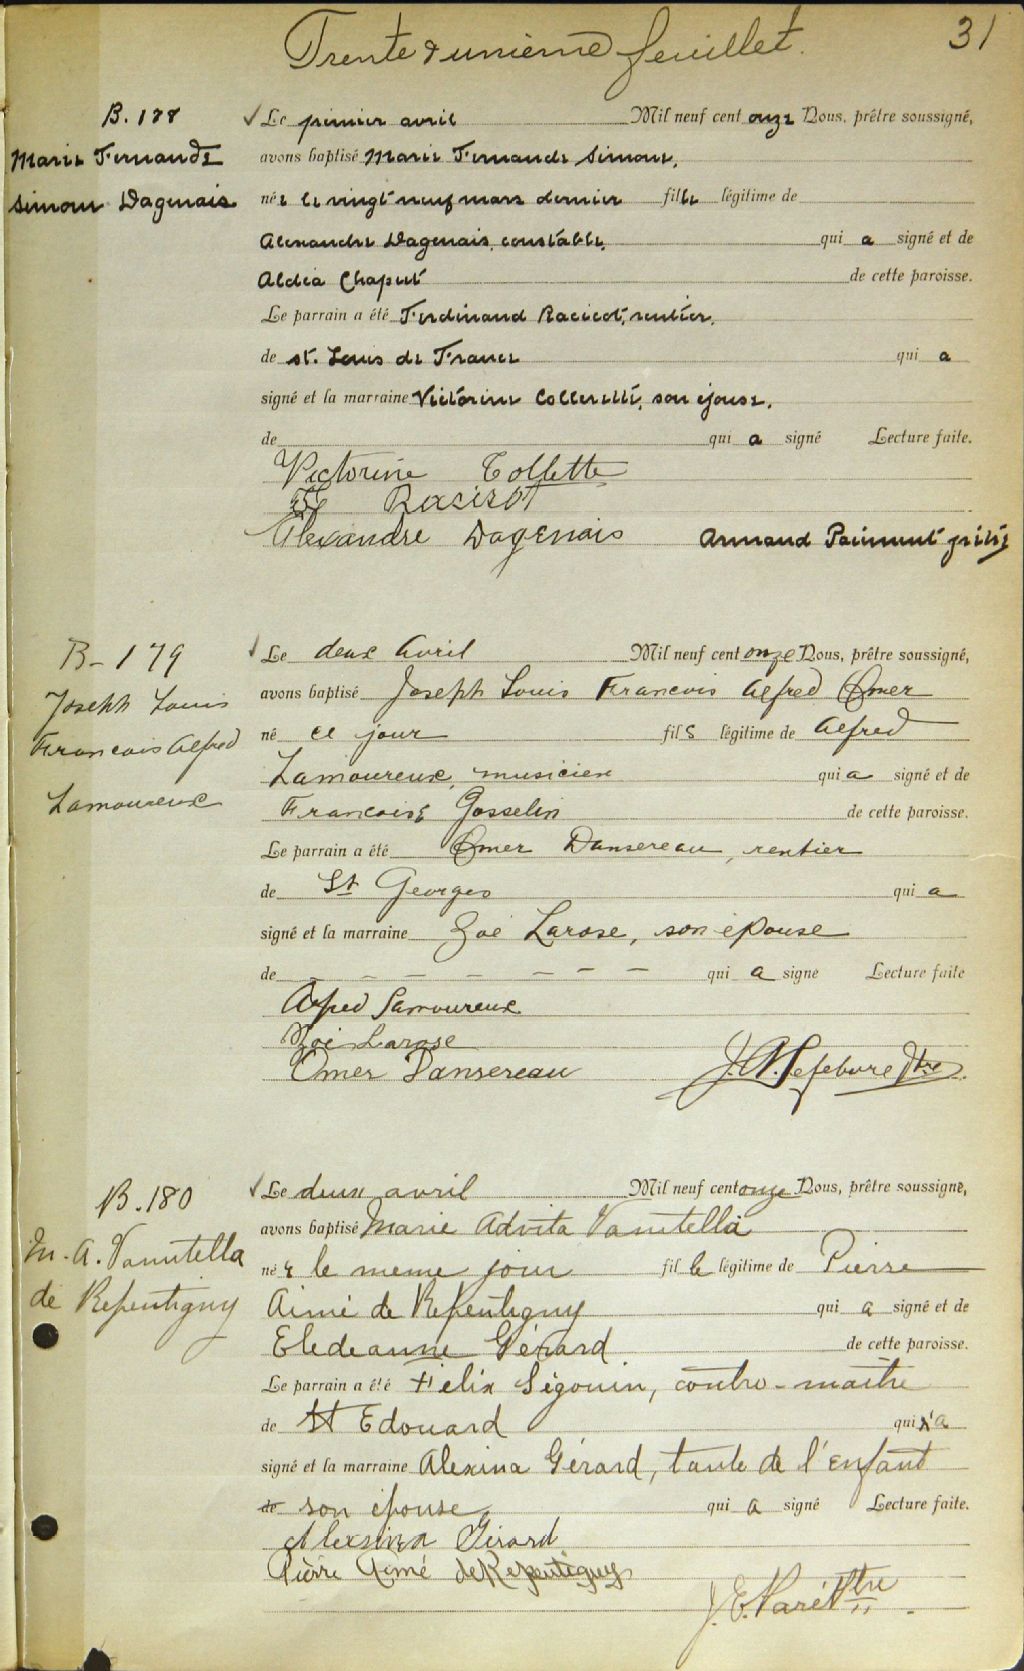 Trente & unième feuillet. 31
B. 178
Marie Fernande
Simone Dagenais
Le premier avril Mil neuf cent onze Nous, prêtre soussigné,
avons baptisé Marie Fernande Simone,
née le vingt neuf mars dernier fille légitime de
Alexandre Dagenais, constable, qui a signé et de
Aldéa Chaput de cette paroisse.
Le parrain a été Ferdinand Racicot, rentier,
de st. Louis de France qui a
signé et la marraine Victorine Collerette, son épouse,
de qui a signé Lecture faite.
Victorine Collette
Racicot
Alexandre Dagenais Armand Paiement ptre
B-179
Joseph Louis
Francois Alfred
Lamoureux
Le deux Avril Mil neuf cent onze Nous, prêtre soussigné,
avons baptisé Joseph Louis Francois Alfred Omer
né ce jour fils légitime de Alfred
Lamoureux, musicien qui a signé et de
Francoise Gosselin de cette paroisse.
Le parrain a été Omer Dansereau, rentier
de St Georges qui a
signé et la marraine Zoé Larose, son épouse
de - - - - - - - qui a signe Lecture faite
Alfred Lamoureux
Zoé Larose
Omer Dansereau J. A. Lefebvre Ptre
B. 180
M. A. Vanutella
de Repentigny
Le deux avril Mil neuf cent onze Nous, prêtre soussigné,
avons baptisé Marie Advita Vanutella
née le meme jour fille légitime de Pierre
Aimé de Repentigny qui a signé et de
Eledeanne Gérard de cette paroisse.
Le parrain a été Félix Ségouin, contre-maître
de St Edouard qui n'a
signé et la marraine Alexina Gérard, tante de l'enfant
de son épouse qui a signé Lecture faite.
Alexina Gérard
Pierre Aimé de Repentigny
J. E. Paré Ptre